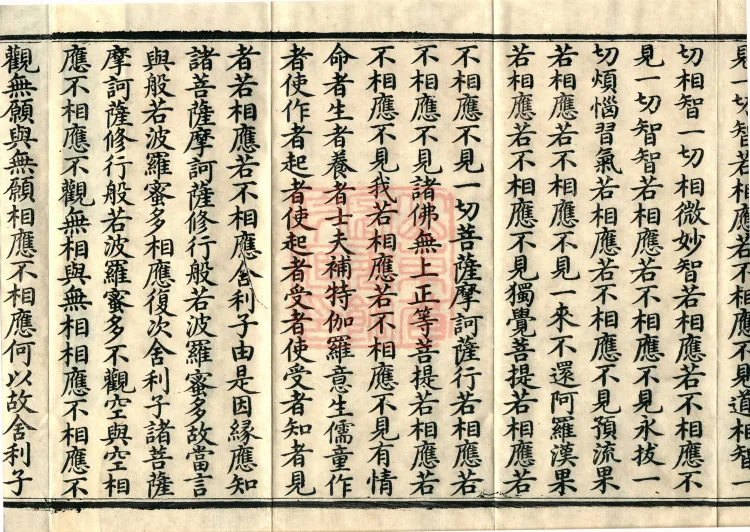 見一切智若相應若不相應不見道相智一
切相智一切相微妙智若相應若不相應不
見一切智智若相應若不相應不見永拔一
切煩惱習氣若相應若不相應不見預流果
若相應若不相應不見一來不還阿羅漢果
若相應若不相應不見獨覺菩提若相應若
不相應不見一切菩薩摩訶薩行若相應若
不相應不見諸佛無上正等菩提若相應若
不相應不見我若相應若不相應不見有情
命者生者養者士夫補特伽羅意生儒童作
者使作者起者使起者受者使受者知者見
者若相應若不相應舍利子由是因緣應知
諸菩薩摩訶薩修行般若波羅蜜多故當言
與般若波羅蜜多相應復次舍利子諸菩薩
摩訶薩修行般若波羅蜜多不觀空與空相
應不相應不觀無相與無相相應不相應不
觀無願與無願相應不相應何以故舍利子